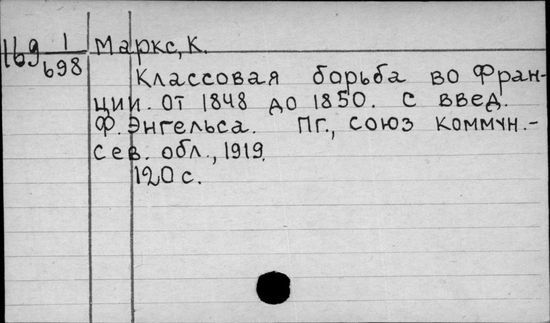 169 1/698
Маркс, К.
Классовая борьба во Фран-
ции. От 1848 до 1850. С введ.
Ф. Энгельса. Пг., Союз коммун.-
сев. обл., 1919.
120 с.